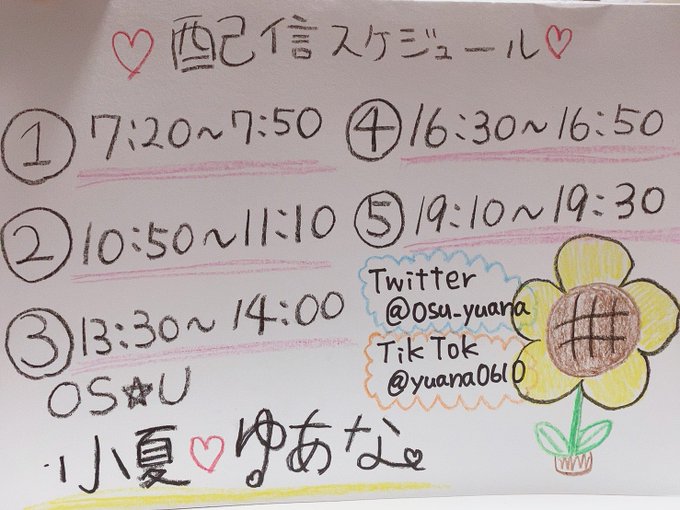 ♡配信スケジュール♡
① 7:20~7:50
② 10:50~11:10
③ 13:30~14:00
④ 16:30~16:50
⑤ 19:10~19:30
Twitter
@osu_yuana
TikTok
@yuana0610
OS☆U
小夏♡ゆあな